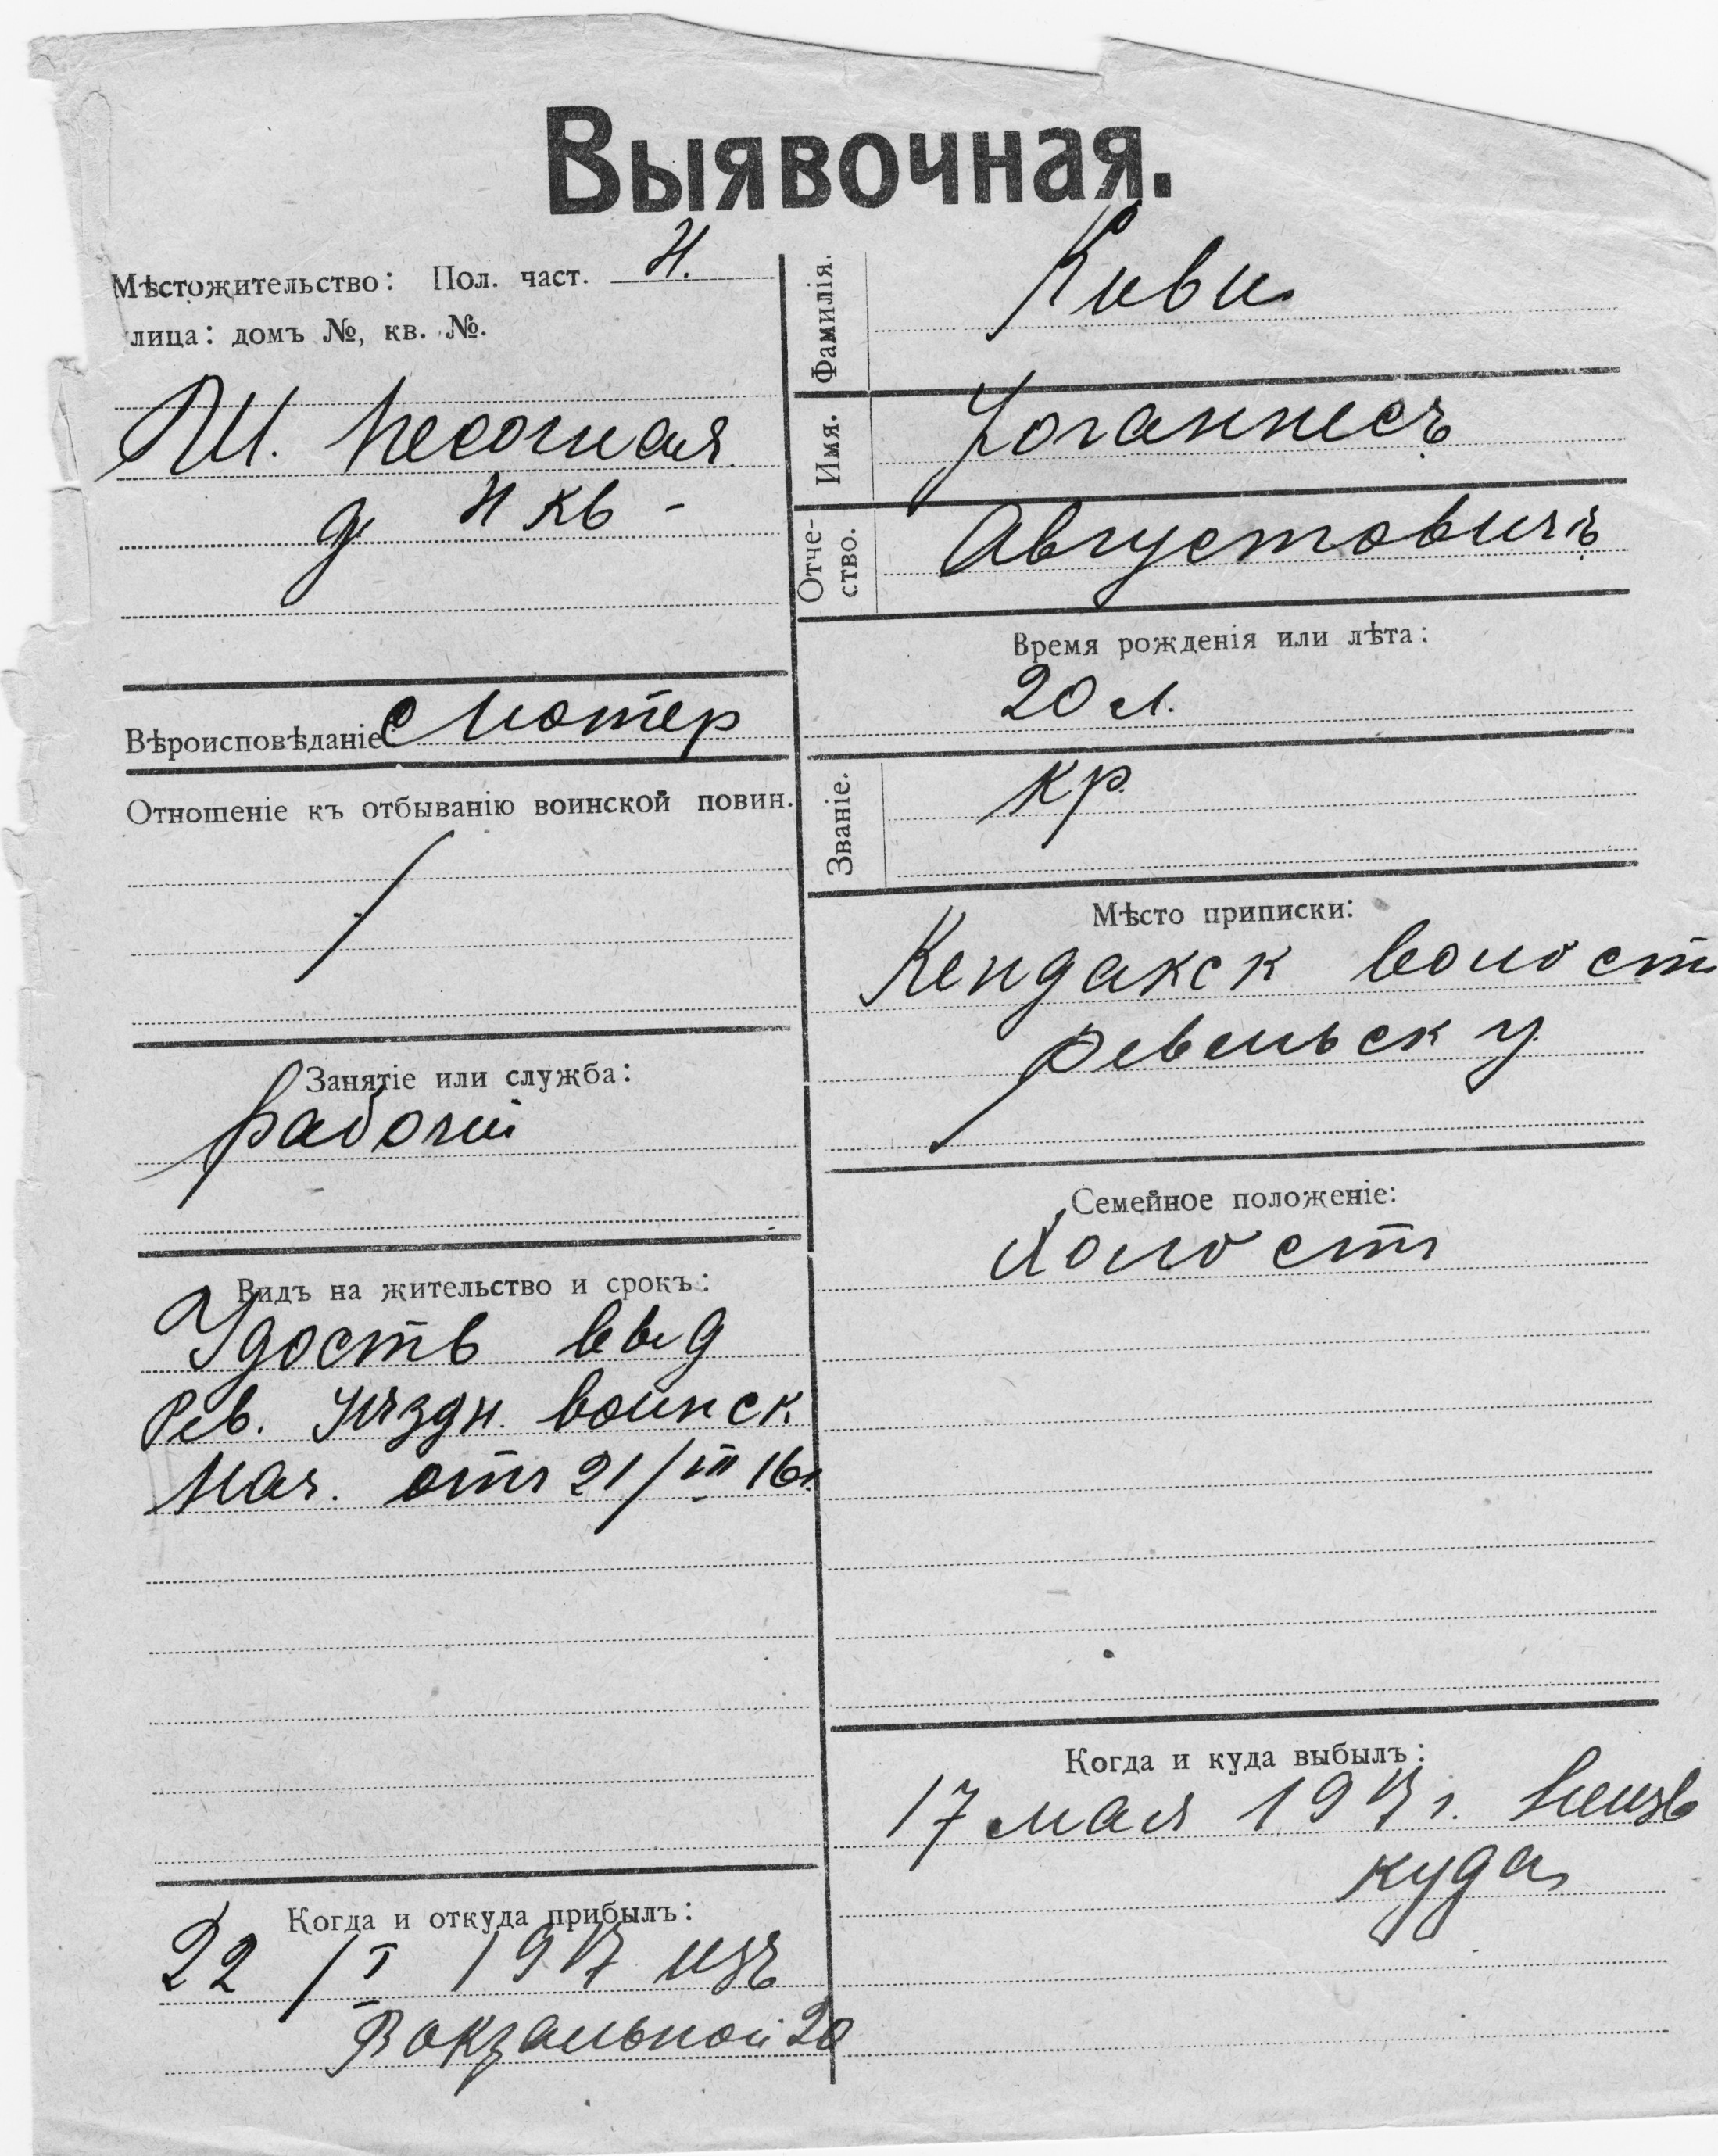 Выявочная.
Мѣстожительство: Пол. част. 4.
лица: домъ №, кв. №.
Ш. Песочная
д 4 кв -
Вѣроисповѣданіе: Лютер
Отношеніе къ отбыванію воинской повин.
/
Занятіе или служба:
рабочій
Видъ на жительство и срокъ:
Удоств выд
Рев. Уѣздн. воинск
Нач. отъ 21/III 16 г.
Когда и откуда прибылъ:
22/I 1917 изъ
Вокзальной 20
Фамилія. Киви
Имя. Іоганнесъ
Отче-
ство. Августовичъ
Время рожденія или лѣта:
20 л.
Званіе. кр.
Мѣсто приписки:
волост
Ревельск у.
Семейное положеніе:
Холостъ
Когда и куда выбылъ:
17 мая 1917 г. неизв
куда